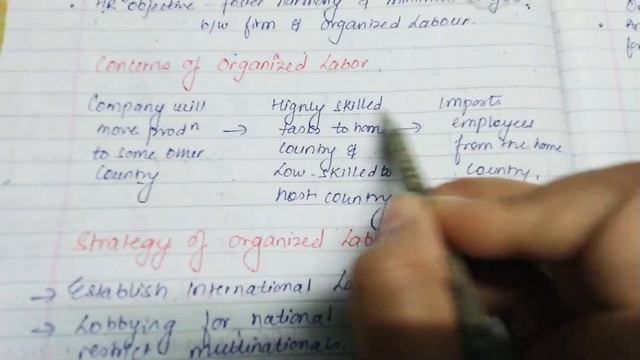 HR objective - foster harmony & minimise
b/w firm & organized Labour.
Concerns of Organized Labor.
Company will move prodⁿ to some other Country →
Highly skilled tasks to home country & Low-skilled to host country →
Imports employees from the home country.
Strategy of organized
→ Establish International
→ Lobbying for national
restrict multinationals.